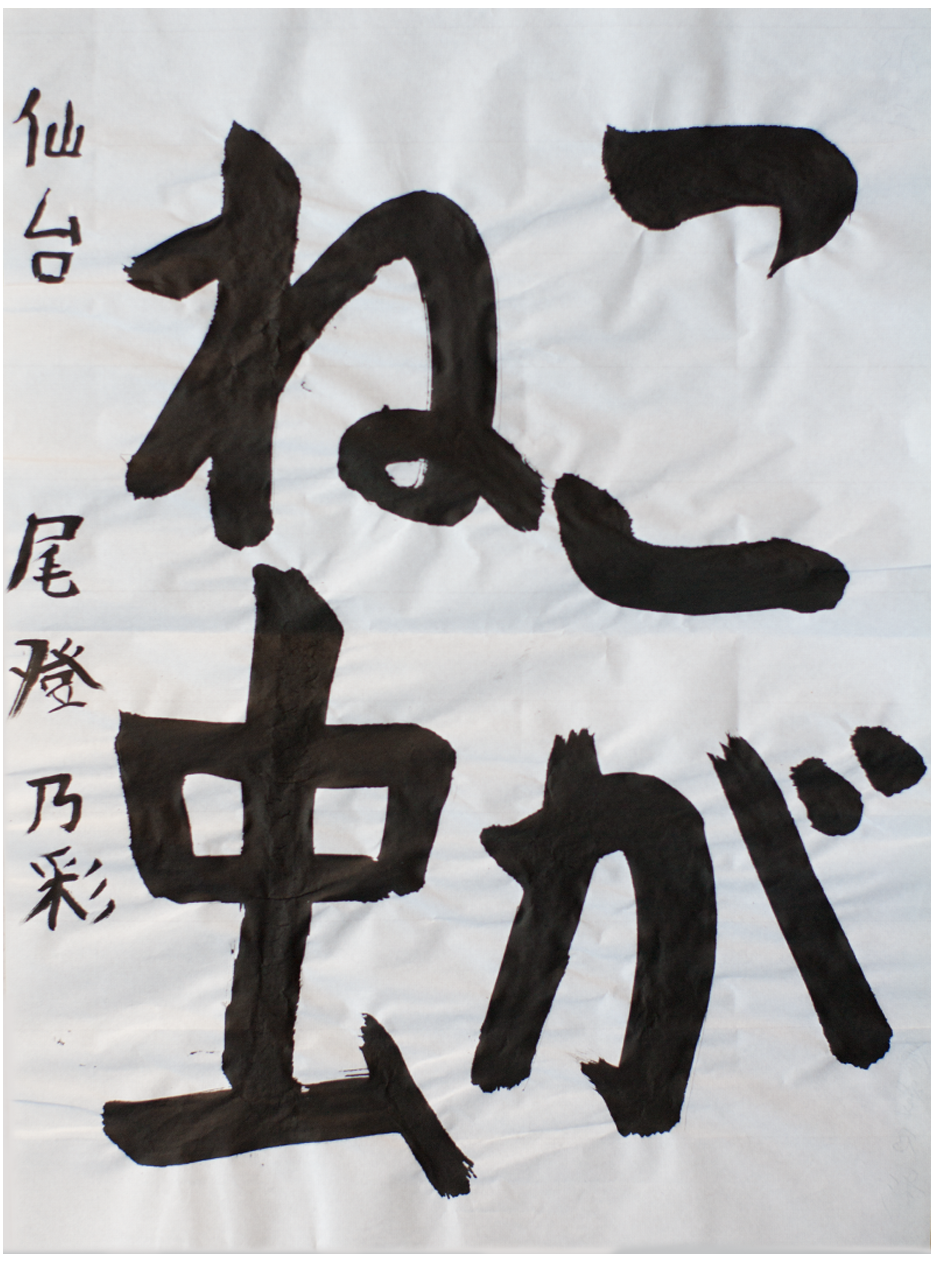 こが
ね虫
仙台 尾登乃彩